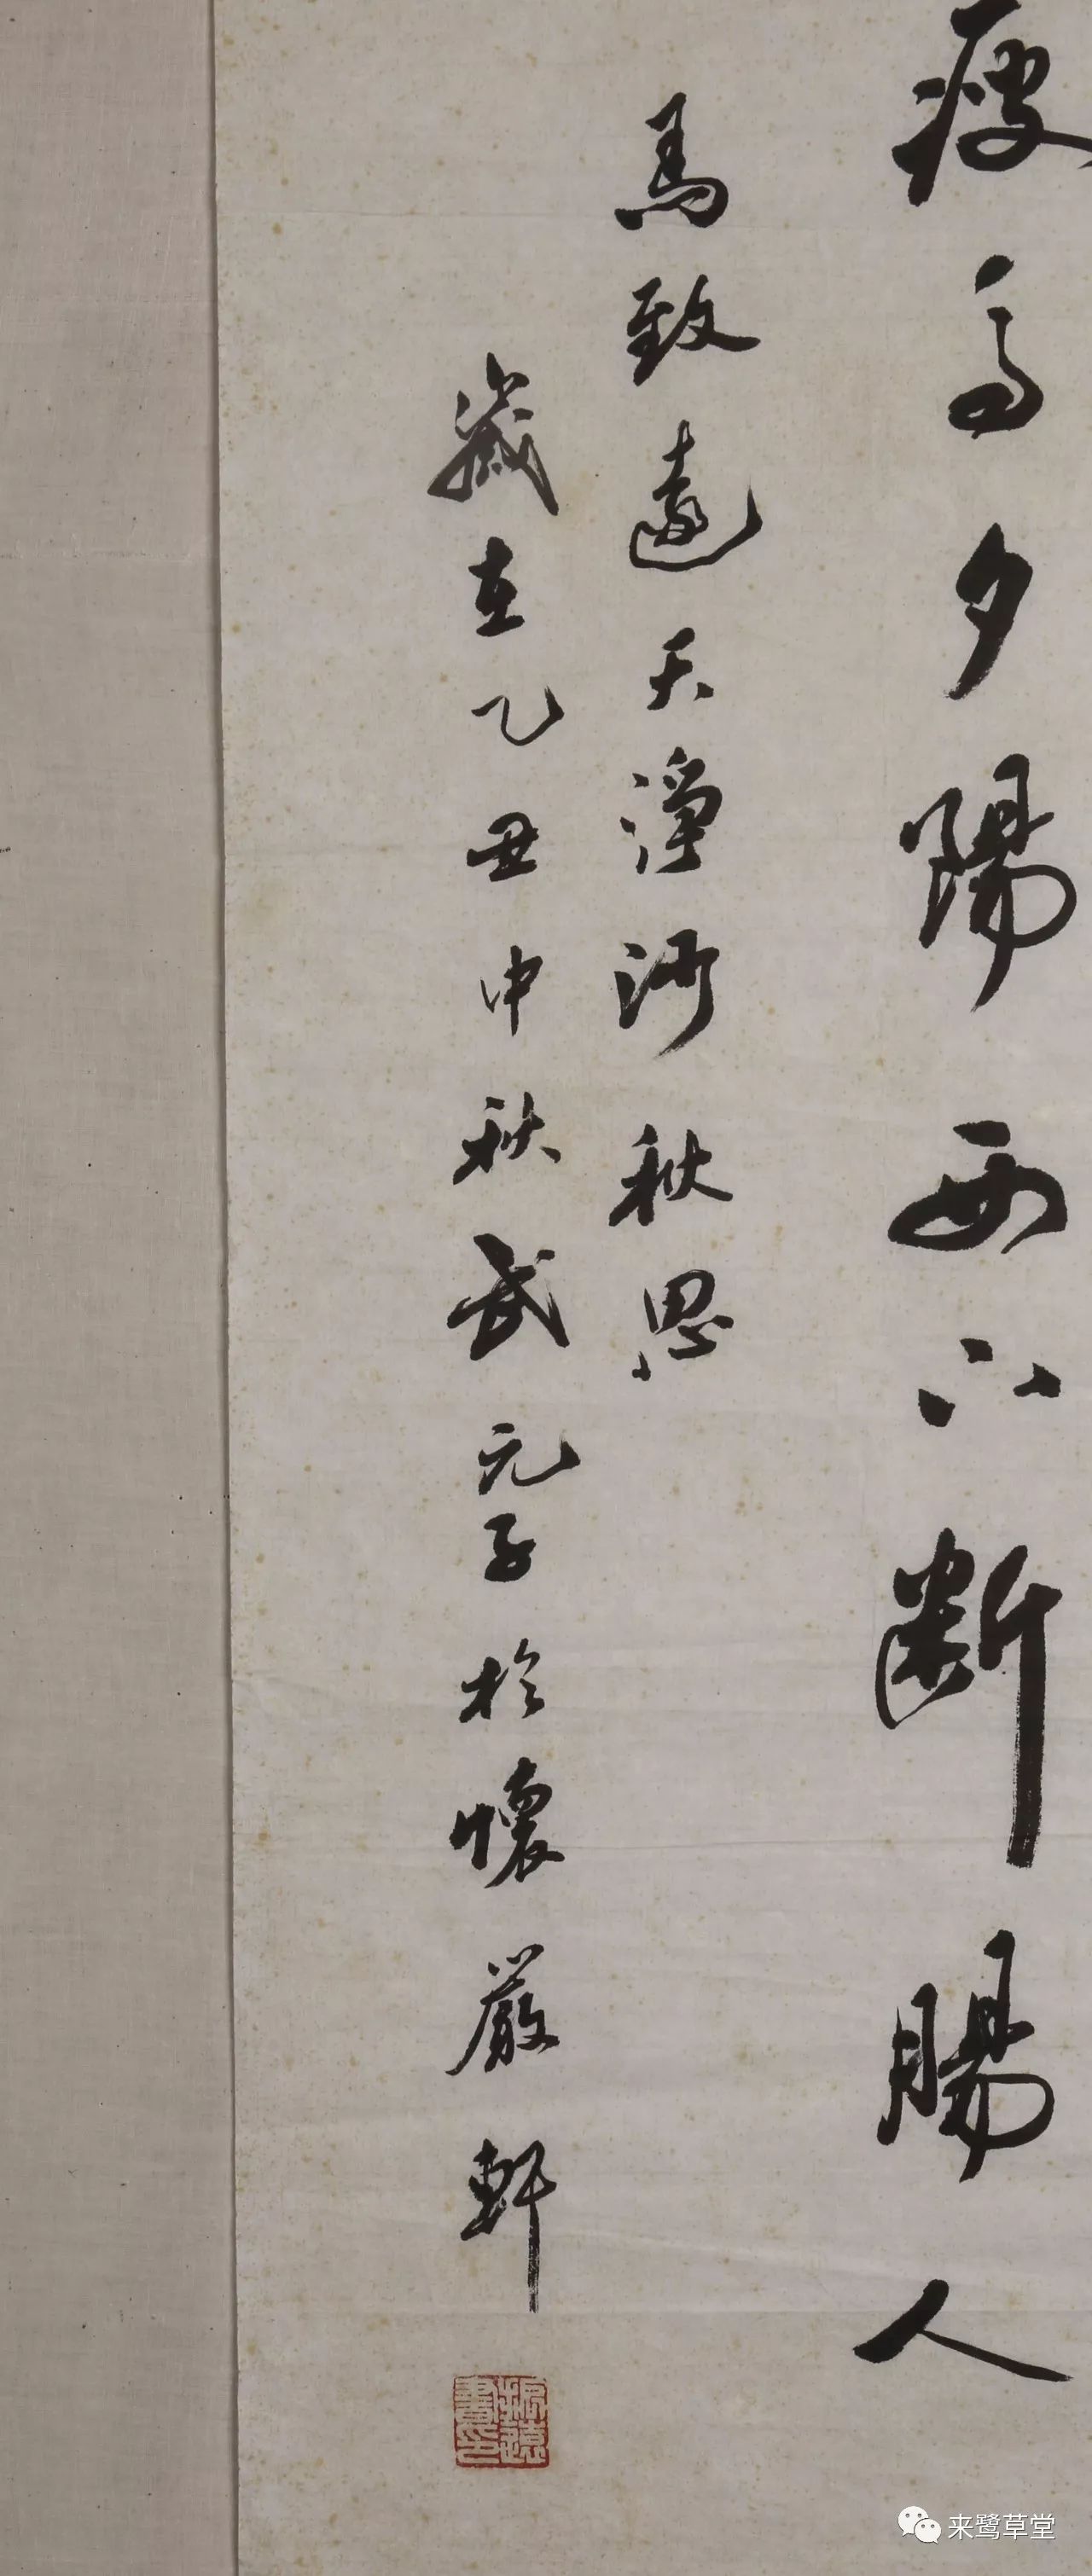 瘦馬夕陽西下斷腸人
馬致遠天淨沙秋思
歲在乙丑中秋武元子於懷嚴軒
振遠書印
来鹭草堂